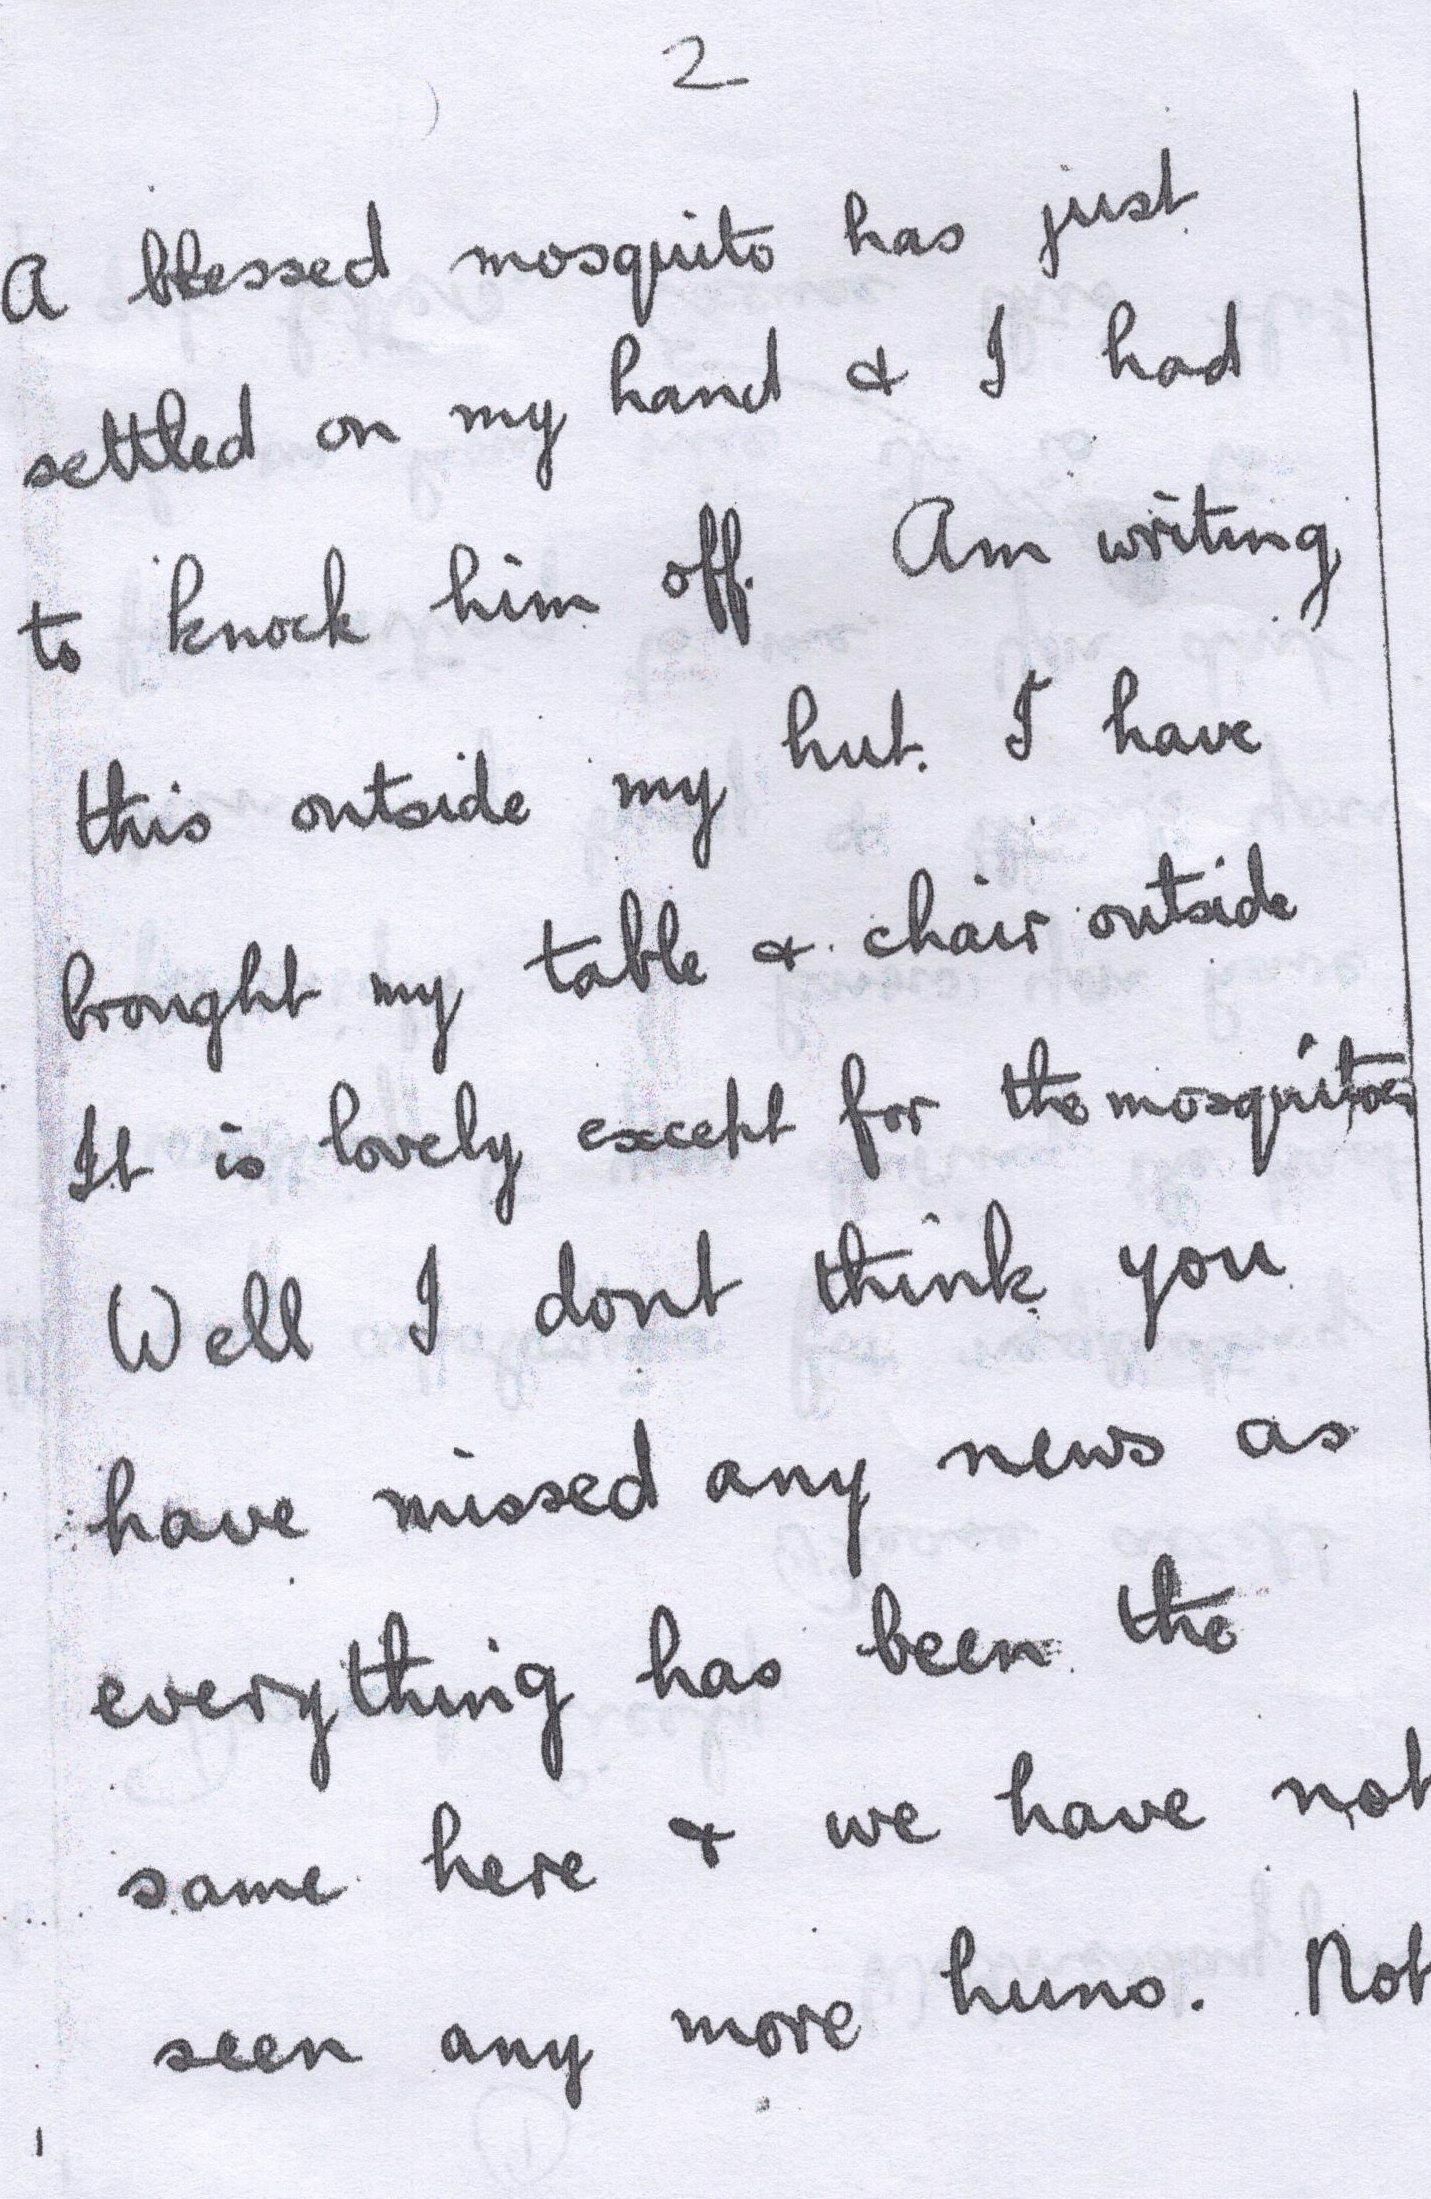 2
A blessed mosquito has just
settled on my hand & I had
to knock him off. Am writing
this outside my hut. I have
brought my table & chair outside
It is lovely except for the mosquitoes
Well I dont think you
have missed any news as
everything has been the
same here & we have not
seen any more huns. Not